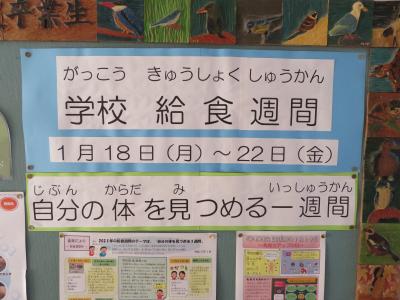 卒業生
がっこう きゅうしょく しゅうかん
学校 給食週間
1月18日(月)~22日(金)
じぶん からだ み いっしゅうかん
自分の体を見つめる一週間